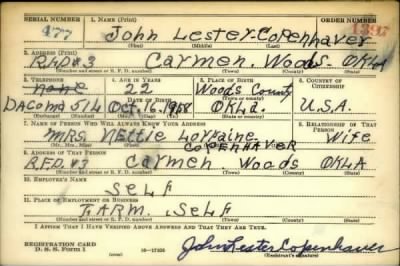 SERIAL NUMBER 1. NAME (Print) ORDER NUMBER
477 John Lester Copenhaver 1397
(First) (Middle) (Last)
2. ADDRESS (Print)
RFD#3 Carmen. Woods OKLA
(Number and street or R. F. D. number) (Town) (County) (State)
3. TELEPHONE 4. AGE IN YEARS 5. PLACE OF BIRTH 6. COUNTRY OF CITIZENSHIP
none 22 Woods County
DATE OF BIRTH (Town or county)
Dacoma 514 Oct. 16. Okla. U.S.A.
(Exchange) (Number) (Mo.) (Day) (Yr.) (State or country)
7. NAME OF PERSON WHO WILL ALWAYS KNOW YOUR ADDRESS 8. RELATIONSHIP OF THAT PERSON
MRS Nettie Lorraine Wife
COPENHAVER
(Mr., Mrs., Miss) (First) (Middle) (Last)
9. ADDRESS OF THAT PERSON
R.F.D. #3 Carmen Woods OKLA
(Number and street or R. F. D. number) (Town) (County) (State)
10. EMPLOYER'S NAME
SELF
11. PLACE OF EMPLOYMENT OR BUSINESS
FARM, SELF
(Number and street or R. F. D. number) (Town) (County) (State)
I AFFIRM THAT I HAVE VERIFIED ABOVE ANSWERS AND THAT THEY ARE TRUE.
REGISTRATION CARD
D. S. S. Form 1 16—17105 John Lester Copenhaver
(Registrant's signature)